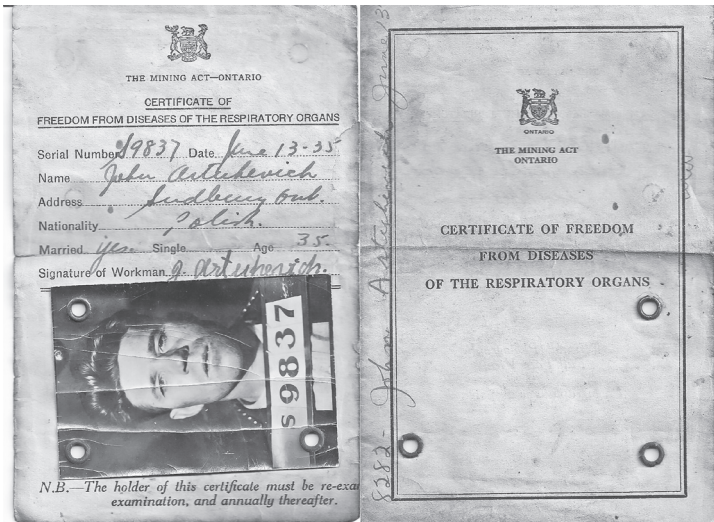 THE MINING ACT—ONTARIO
CERTIFICATE OF
FREEDOM FROM DISEASES OF THE RESPIRATORY ORGANS
Serial Number S9837 Date June 13-35
Name John Artukevich
Address Sudbury Ont.
Nationality Polish.
Married yes. Single Age 35.
Signature of Workman J. Artukevich.
S9837
N.B.—The holder of this certificate must be re-exa
examination, and annually thereafter.
ONTARIO
THE MINING ACT
ONTARIO
CERTIFICATE OF FREEDOM
FROM DISEASES
OF THE RESPIRATORY ORGANS
8282 - John June 13